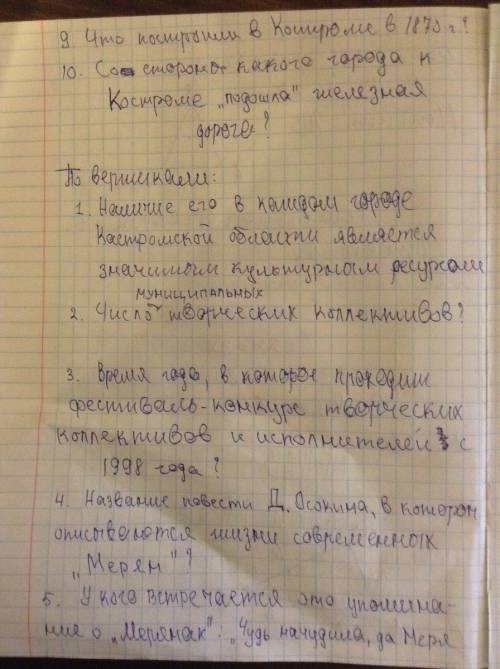 9. Что построили в Костроме в 1870 г.?
10. Со стороны какого города к
Костроме „подошла" железная
дорога?
По вертикали:
1. Наличие его в каждом городе
Костромской области является
значимым культурным ресурсом
муниципальных
2. Число творческих коллективов?
3. Время года, в которое проходит
фестиваль-конкурс творческих
коллективов и исполнителей с
1998 года?
4. Название повести Д. Осокина, в которой
описываются жизни современных
„Мерян"?
5. У кого встречается это упомина-
ние о „Мерянах": „Чудь начудила, да Меря